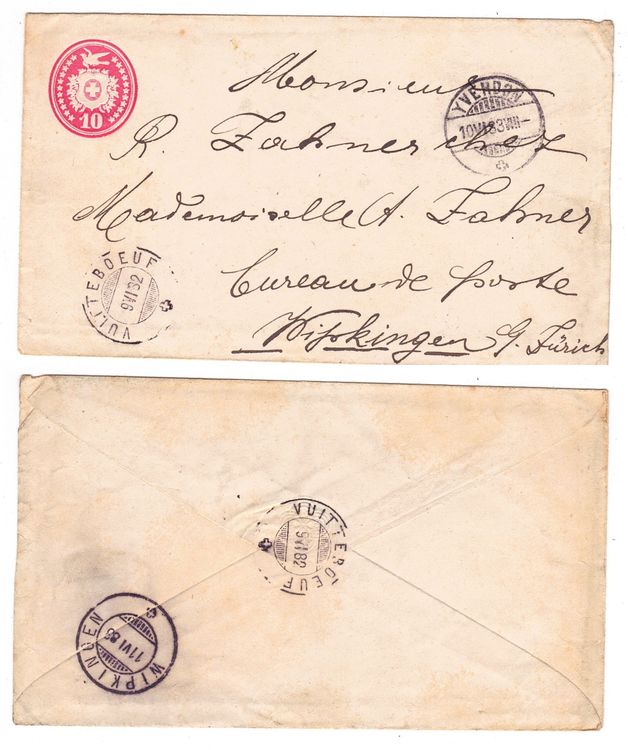 10
Monsieur
YVERDON
10 VI 83 VII-
R. Zahner chez
Mademoiselle A. Zahner
VUITTEBOEUF
9 VI 82
Bureau de poste
Wipkingen g/. Zürich
VUITTEBOEUF
9 VI 82
WIPKINGEN
11 VI 83